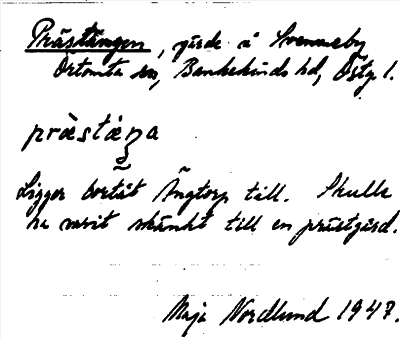 Prästängen, gärde å Svenneby
Örtomta sn, Bankekinds hd, Östg l.
prästäŋa
Ligger bortåt Ängtorp till. Skulle
ha varit skänkt till en prästgård.
Maja Nordlund 1947.